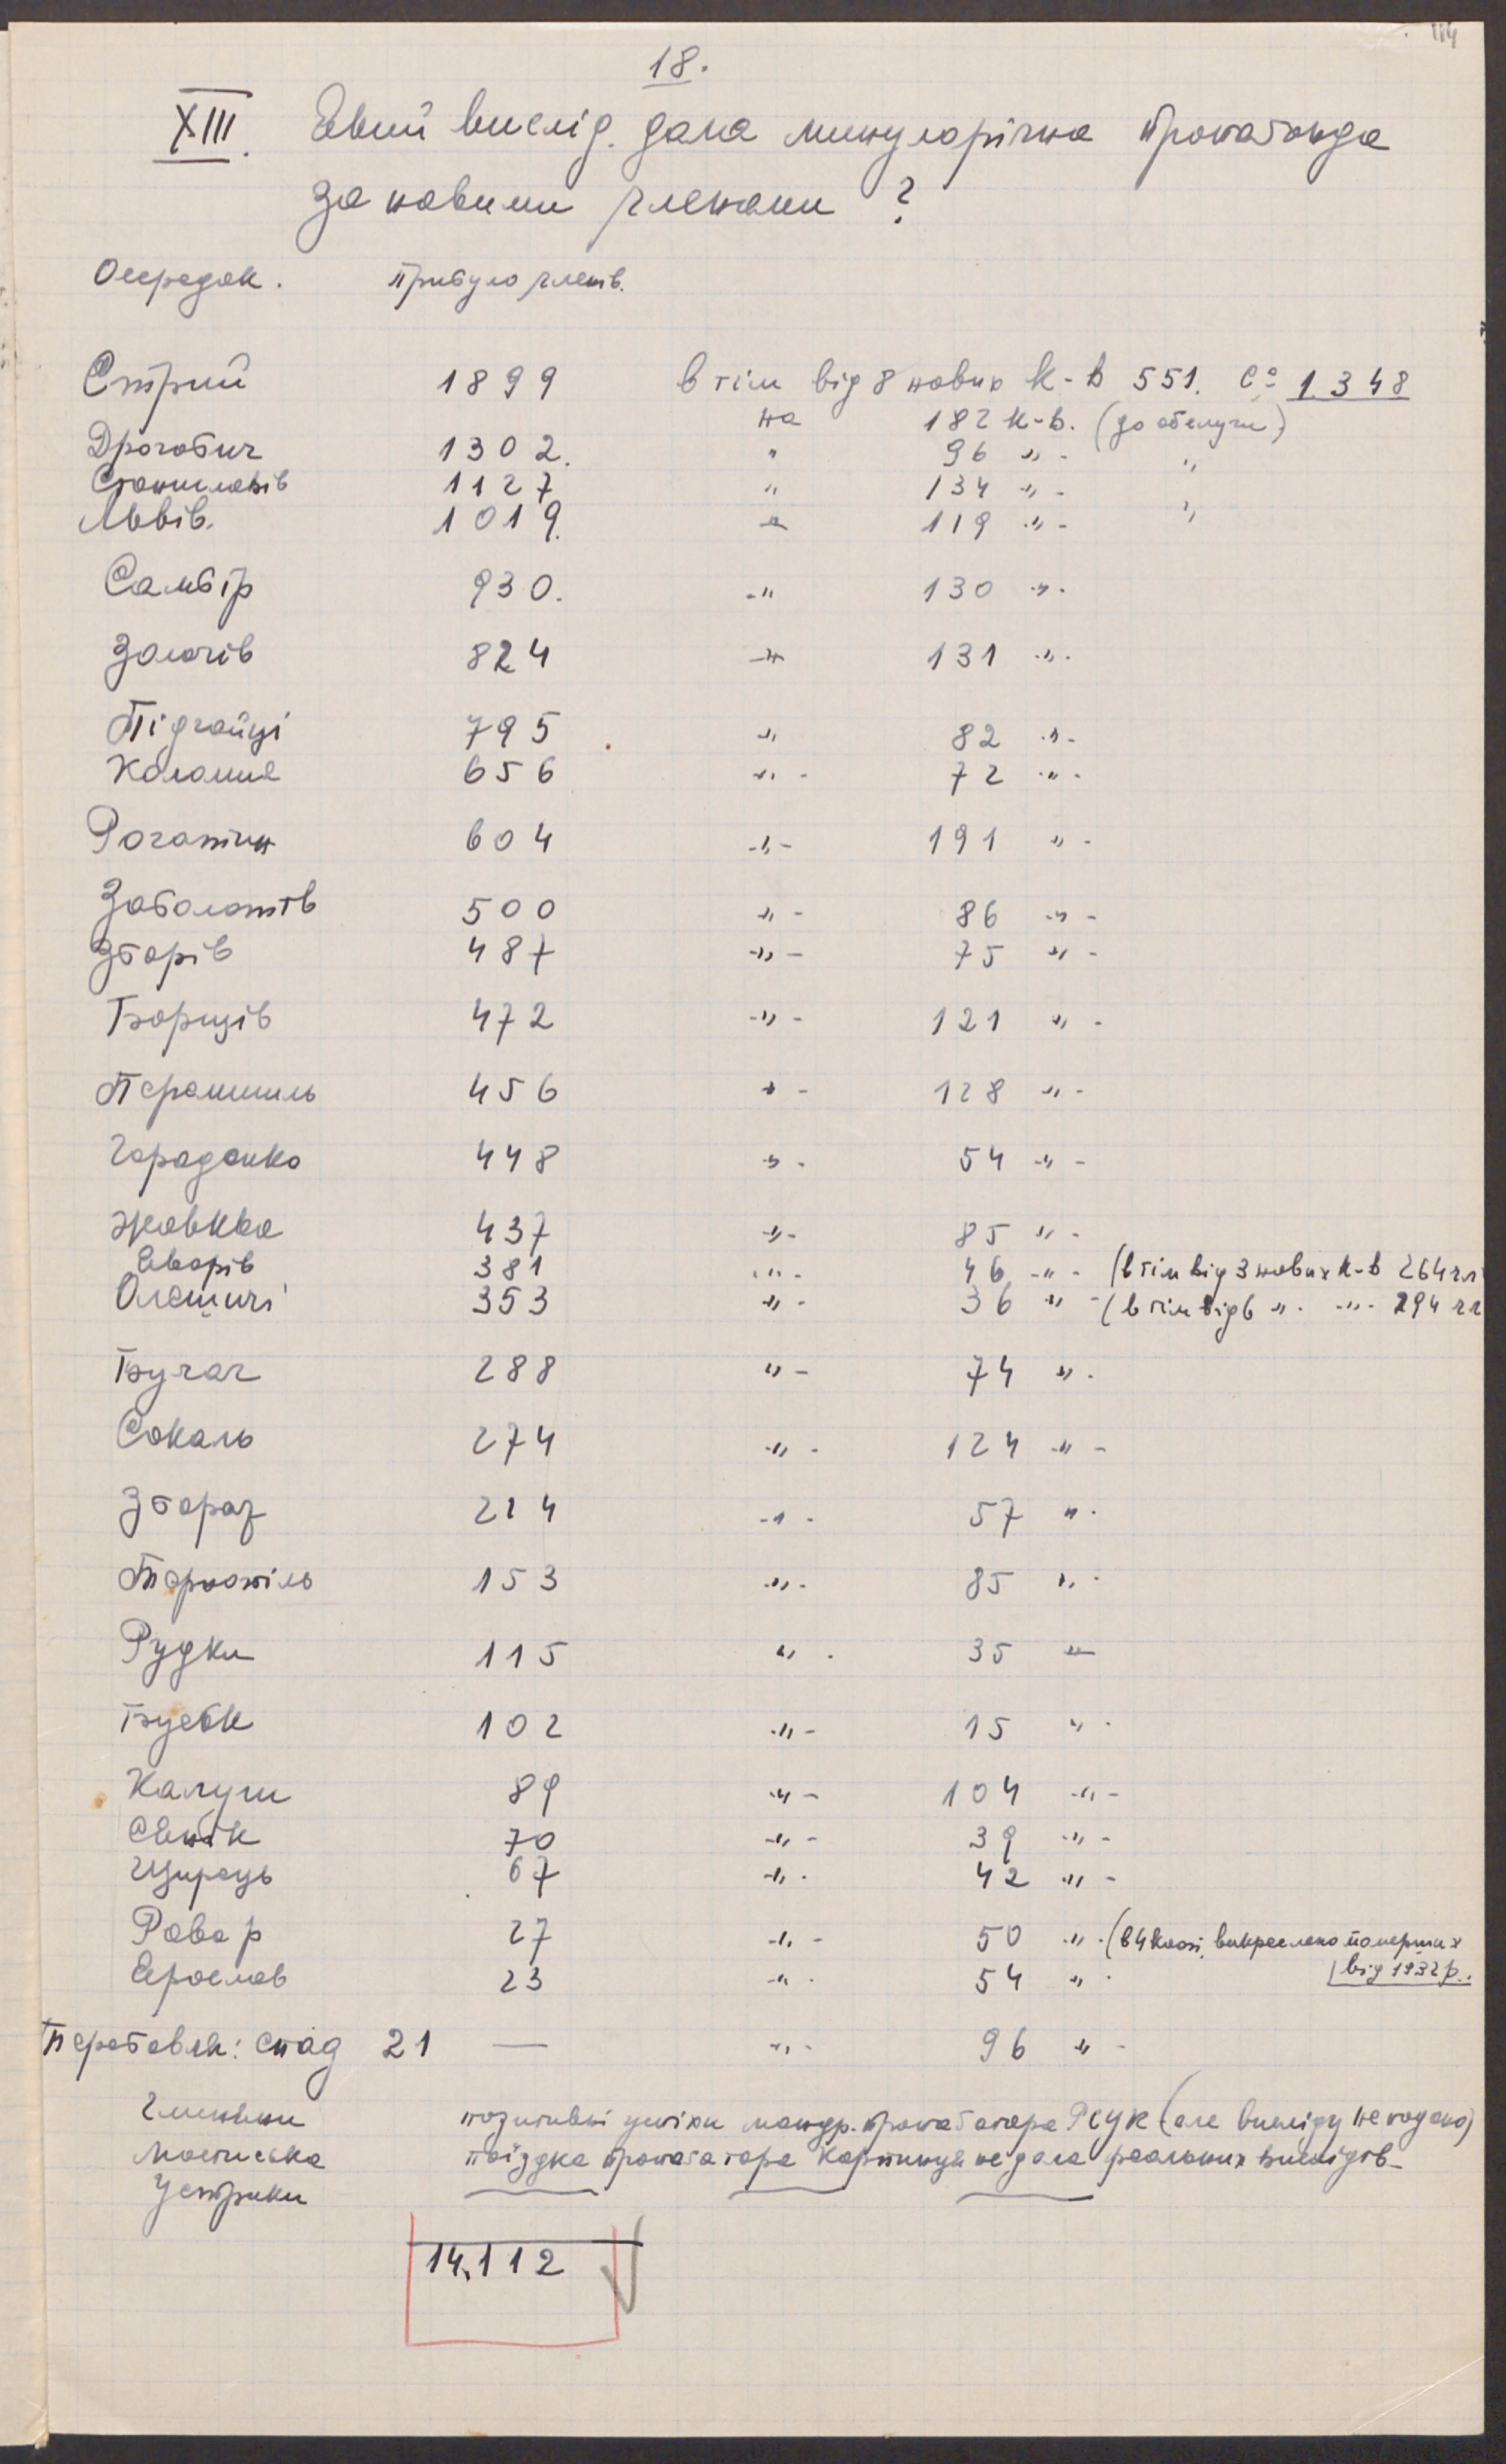 114
18.
XIII. Який вислід дала минулорічна пропаганда
за новими членами ?
Осередок. прибуло членів.
Стрий 1899 в тім від 8 нових к-в 551. с= 1.348
на 182 к-в. (до обслуги)
Дрогобич 1302. " 96 " - "
Станиславів 1127 " 134 " - "
Львів. 1019. " 119 " -
Самбір 930. - " 130 " -
Золочів 824 - " - 131 " -
Підгайці 795 " 82 " -
Коломия 656 " - 72 " -
Рогатин 604 - " - 191 " -
Заболотів 500 " - 86 " -
Зборів 487 - " - 75 " -
Борщів 472 - " - 121 " -
Перемишль 456 " - 128 " -
Городенка 448 " - 54 " -
Жовква 437 " - 85 " -
Яворів 381 " - 46 - " - (в тім від 3 нових к-в 264 чл
Олешичі 353 " - 36 " - (в тім від 6 " - " - 294 чл
Бучач 288 " - 74 " -
Сокаль 274 - " - 124 - " -
Збараж 214 - " - 57 " -
Тернопіль 153 - " - 85 " -
Рудки 115 " - 35 "
Буськ 102 - " - 15 " -
Калуш 89 - " - 104 - " -
Сянік 70 - " - 39 - " -
Щирець 67 - " - 42 " -
Рава р 27 - " - 50 " - (в 4 кооп. викреслено померших
від 1932 р.
Ярослав 23 - " - 54 " -
Перегавян: спад 21 — - " - 96 " -
Глиняни позитивні успіхи мандр. пропагатора РСУК (але висліду не подано)
Мостиська поїздка пропагатора не дала реальних вислідів -
Устрики
14.112